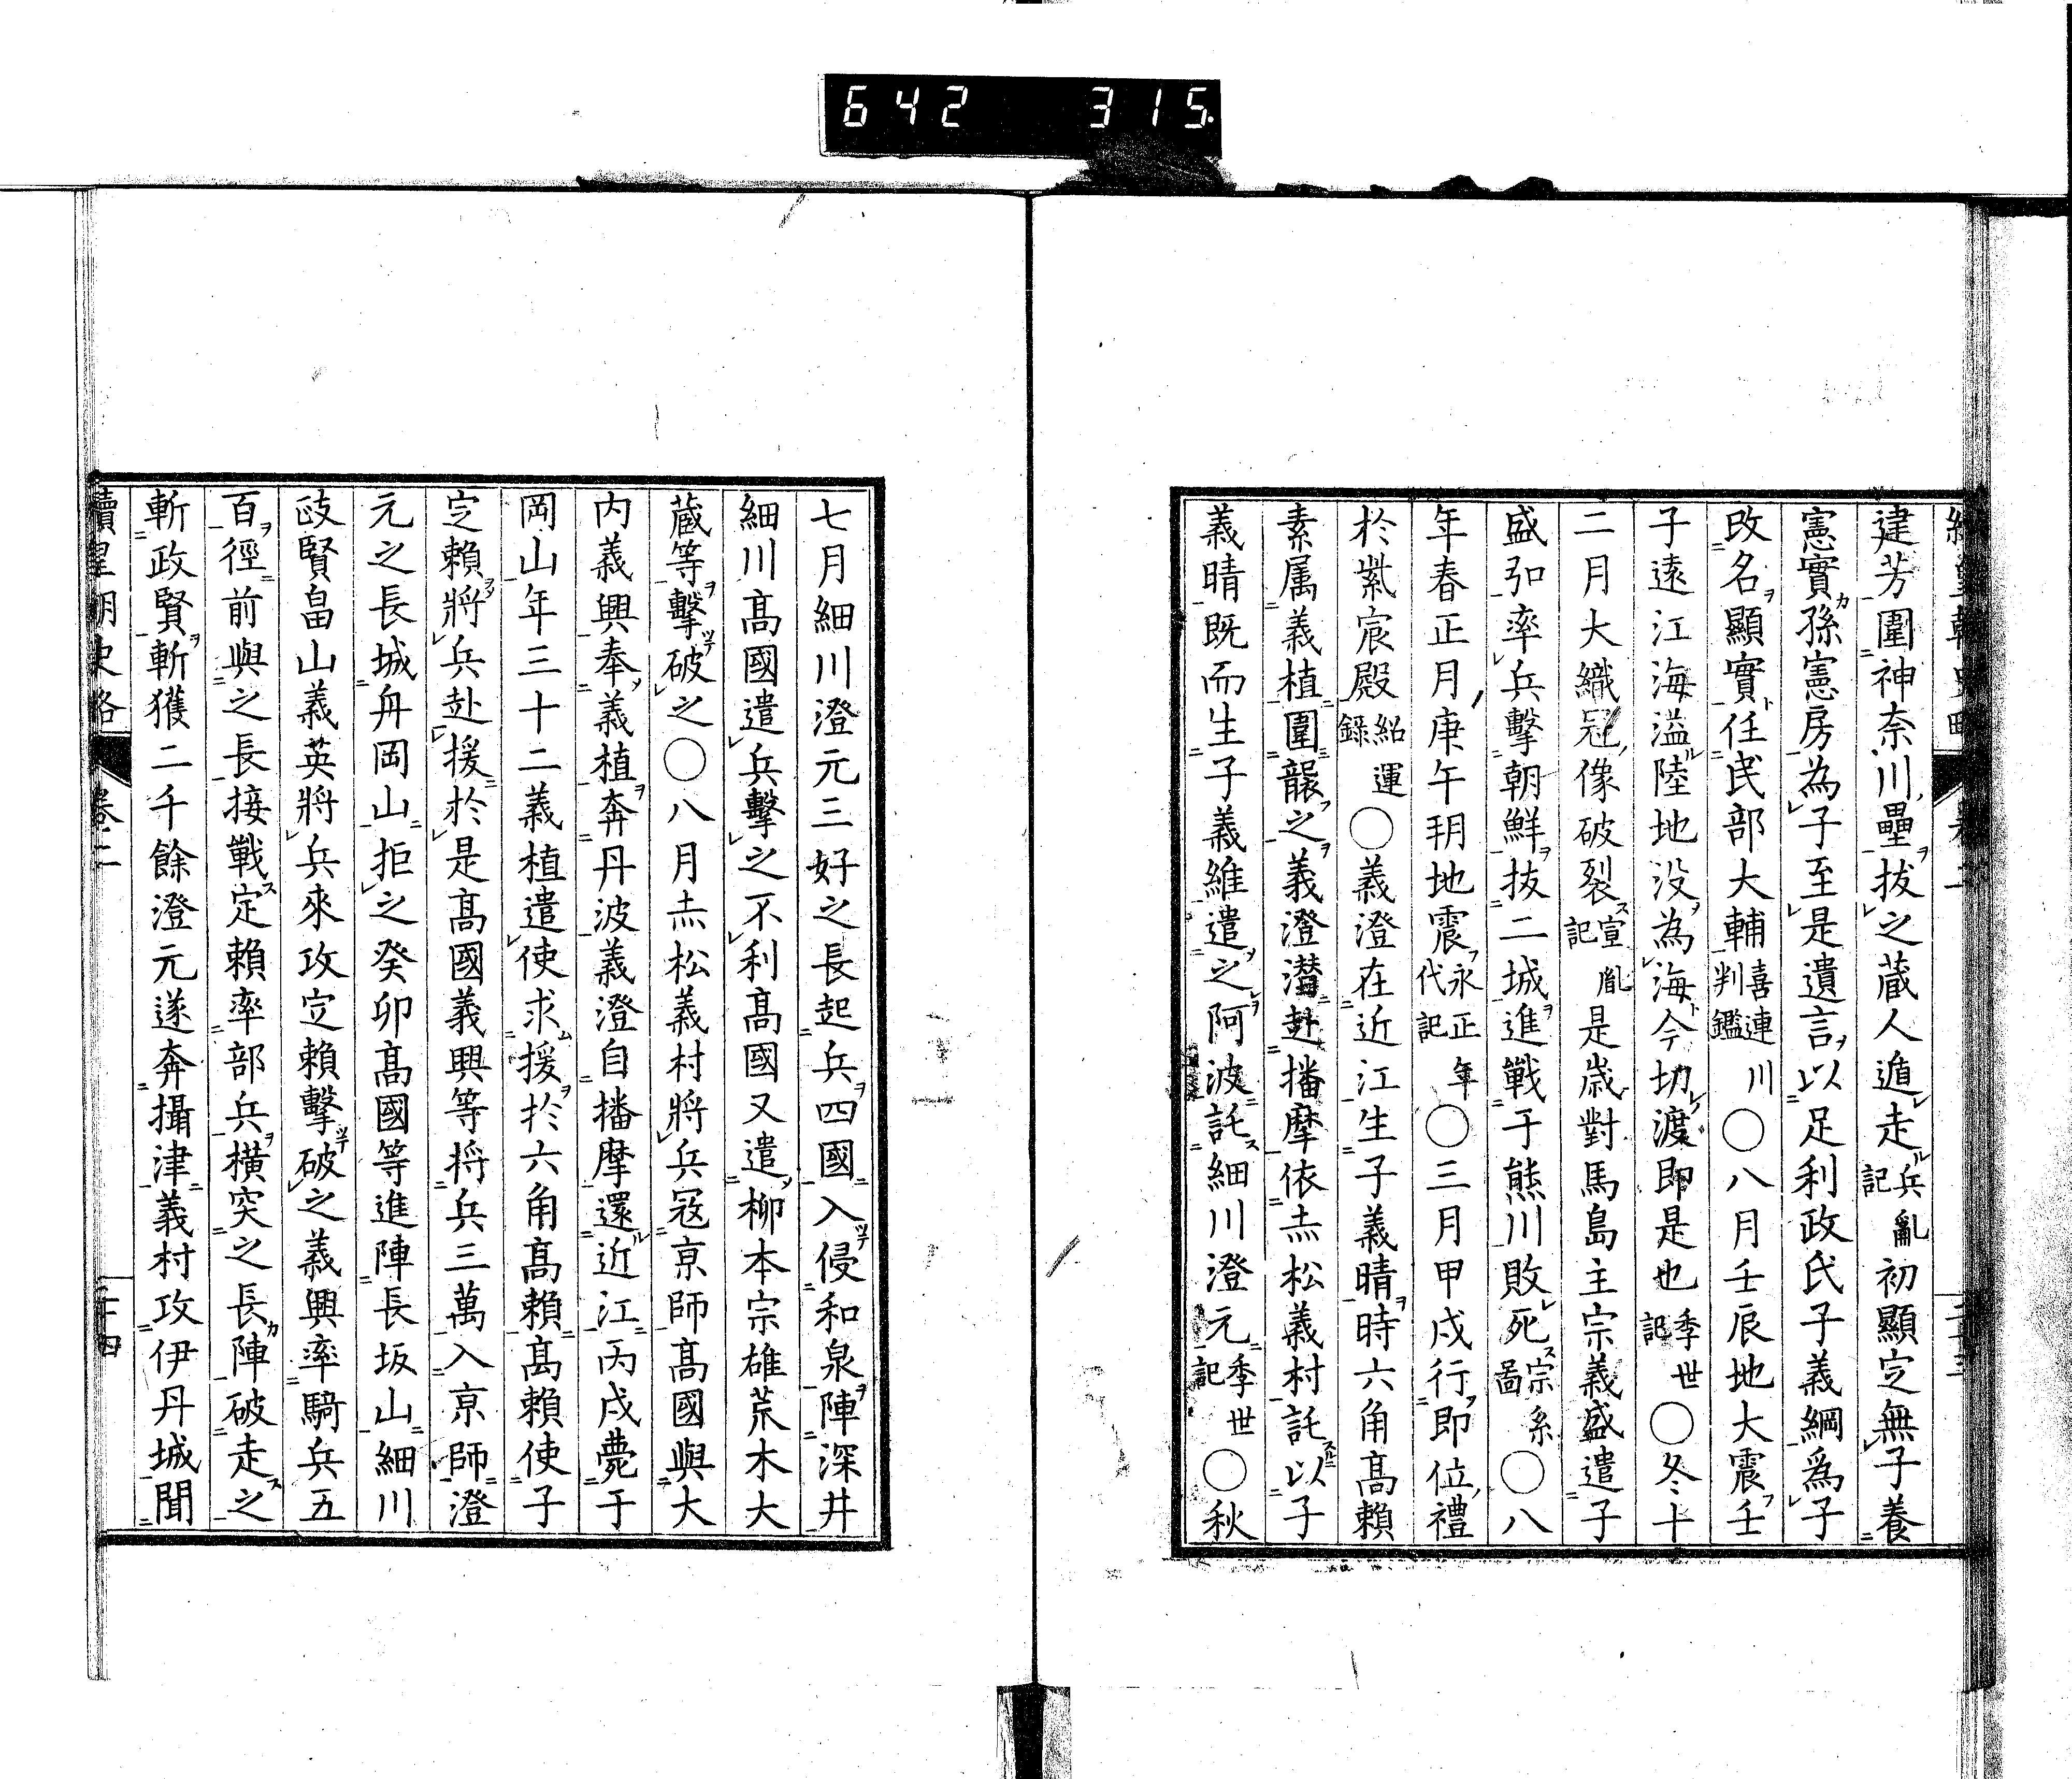 642 315
建芳圍神奈川壘拔之藏人遁走兵亂記初顯定無子養
憲實孫憲房為子至是遺言以足利政氏子義綱為子
改名顯實任民部大輔喜連川判鑑〇八月壬辰地大震壬
子遠江海溢陸地没為海今切渡即是也季世記〇冬十
二月大織冠像破裂宣胤記是歳對馬島主宗義盛遣子
盛弘率兵擊朝鮮拔二城進戰于熊川敗死宗系圖〇八
年春正月庚午朔地震永正年代記〇三月甲戌行即位禮
於紫宸殿紹運錄〇義澄在近江生子義晴時六角髙賴
素属義植圍襲之義澄潛赴播摩依赤松義村託以子
義晴既而生子義維遣之阿波託細川澄元季世記〇秋
七月細川澄元三好之長起兵四國入侵和泉陣深井
細川髙國遣兵擊之不利髙國又遣柳本宗雄荒木大
藏等擊破之〇八月赤松義村將兵冦京師髙國與大
内義興奉義植奔丹波義澄自播摩還近江丙戌薨于
岡山年三十二義植遣使求援於六角髙賴髙賴使子
定賴將兵赴援於是髙國義興等将兵三萬入京師澄
元之長城舟岡山拒之癸卯髙國等進陣長坂山細川
政賢畠山義英將兵來攻定賴擊破之義興率騎兵五
百徑前與之長接戰定賴率部兵横突之長陣破走之
斬政賢斬獲二千餘澄元遂奔攝津義村攻伊丹城聞
續皇朝史略 卷二 二十四